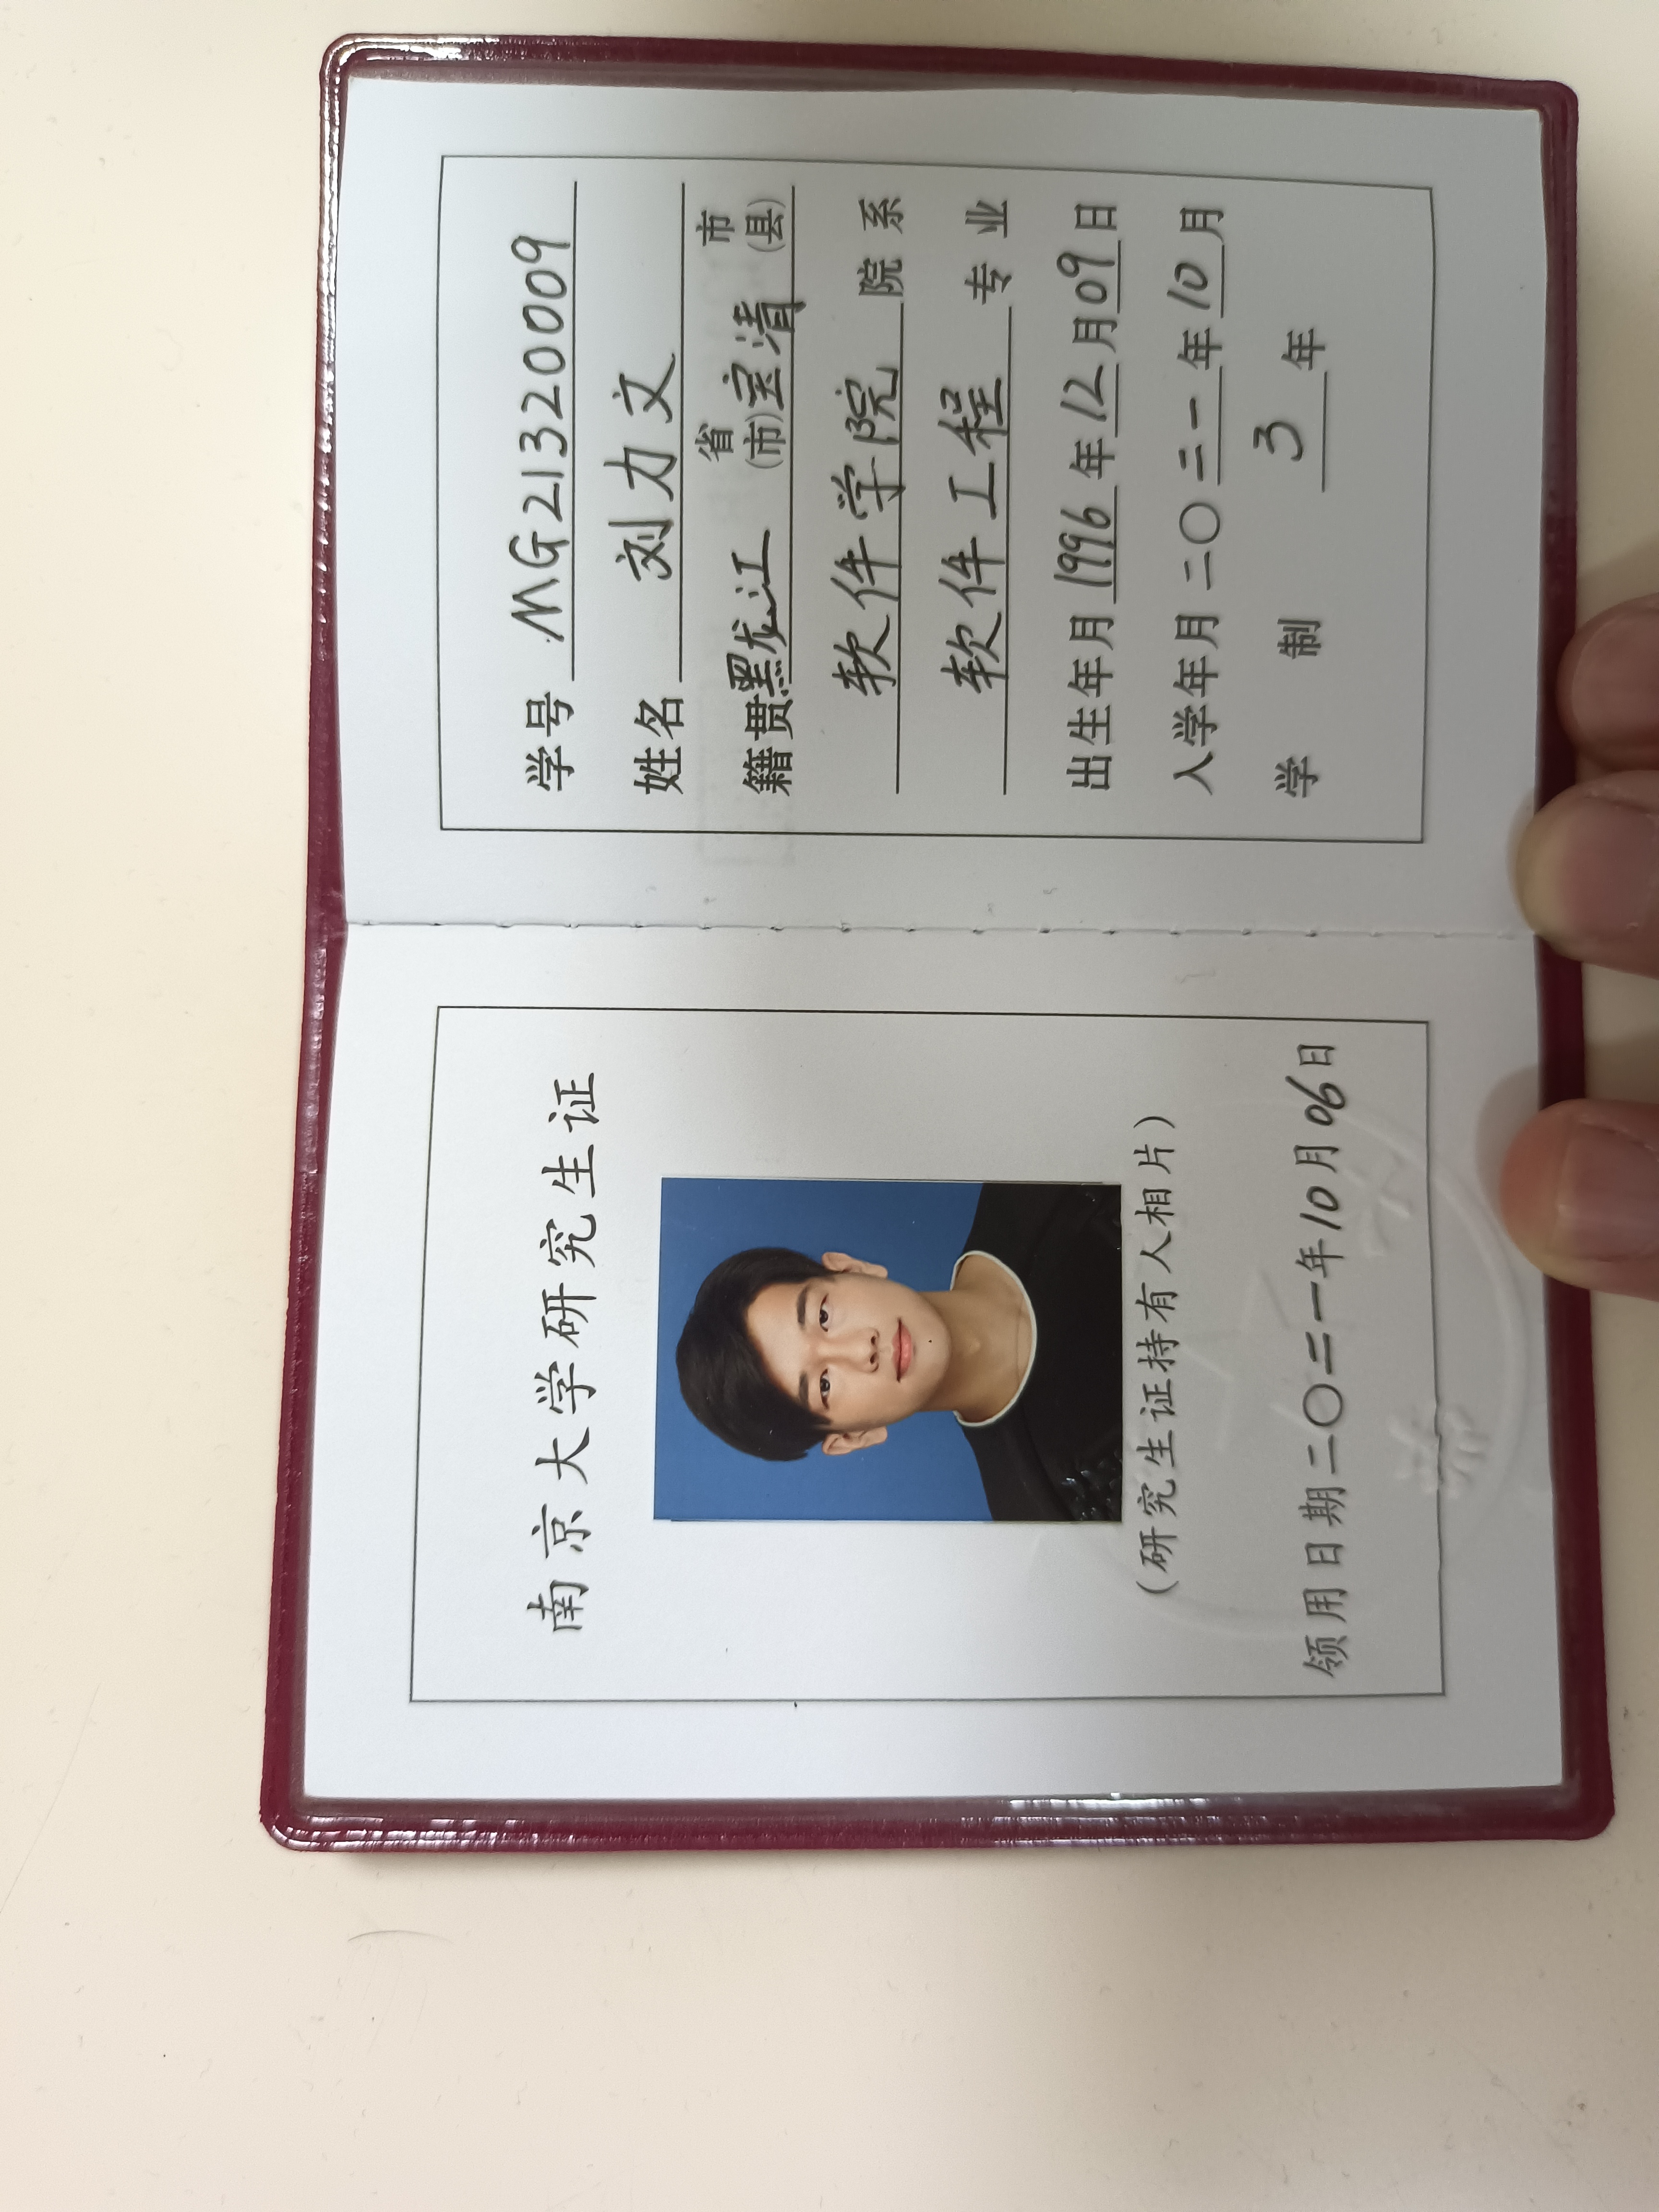 南京大学研究生证
(研究生证持有人相片)
领用日期二〇二一年10月06日
学号 MG21320009
姓名 刘力文
籍贯黑龙江 省(市)宝清 市(县)
软件学院 院系
软件工程 专业
出生年月1996年12月09日
入学年月二〇二一年10月
学制 3 年